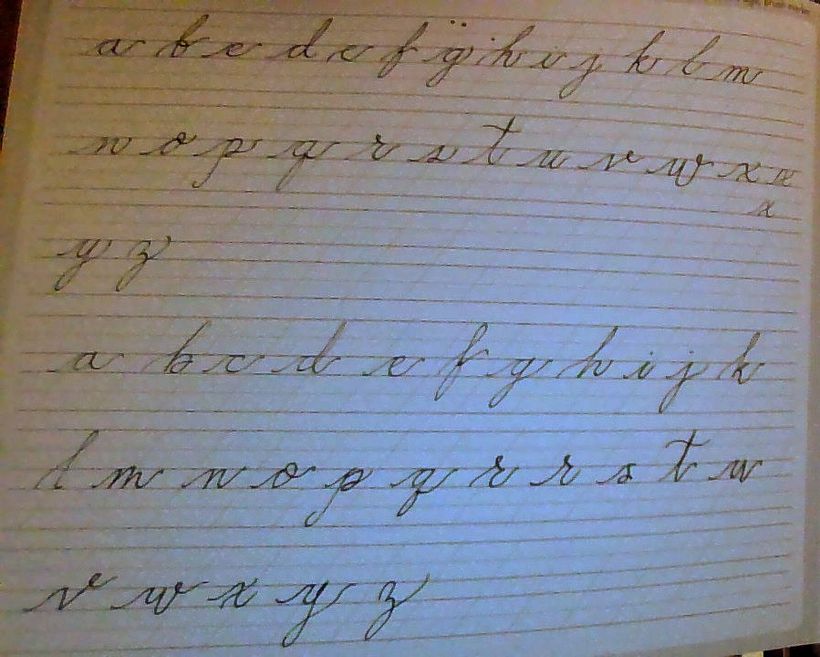 a b c d e f g̈ h i j k l m
n o p q r s t u v w x x
x
y z
a b c d e f g h i j k
l m n o p q r r s t u
v w x y z